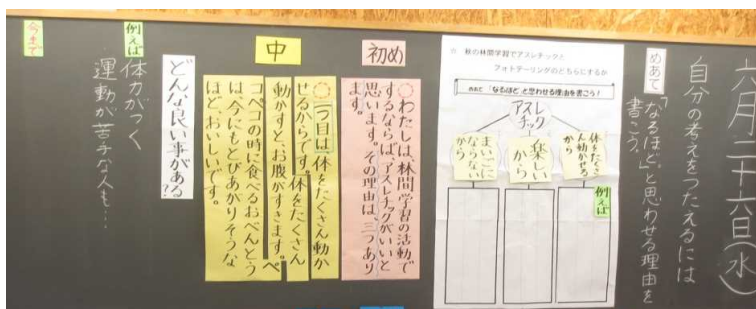 六月二十六日(水)
自分の考えをつたえるには
めあて
「なるほど。」と思わせる理由を
書こう。
秋の林間学習でアスレチックと
フォトテーリングのどちらにするか
めあて 「なるほど」と思わせる理由を書こう!
アスレ
チック
体をたくさ
ん動かせる
から
楽しい
から
まいごに
ならない
から
例えば
初め
○わたしは、林間学習の活動で
するならば、アスレチックがいいと
思います。その理由は、三つあり
ます。
中
○一つ目は、体をたくさん動か
せるからです。体をたくさん
動かすと、お腹がすきます。ペ
コペコの時に食べるおべんとう
は、今にもとびあがりそうな
ほど、おいしいです。
どんな良い事がある?
例えば
体力がつく
運動が苦手な人も…
今まで